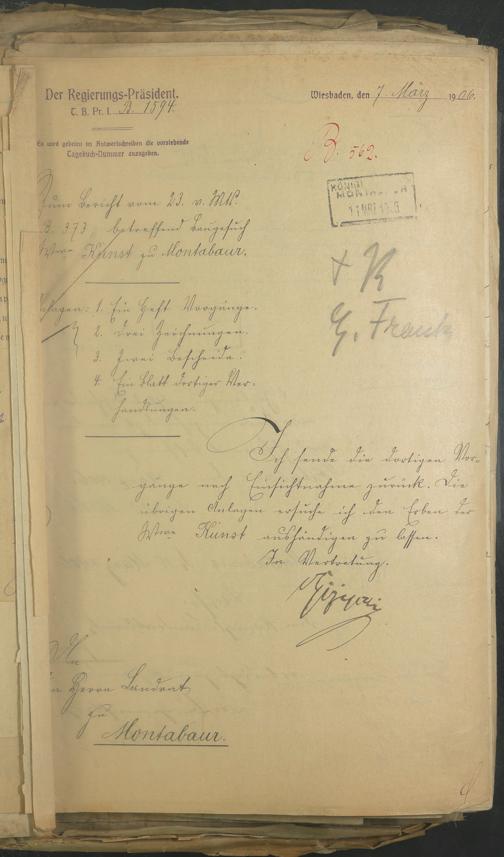 Der Regierungs-Präsident.
T. B. Pr. I. B. 1594.
Es wird gebeten im Antwortschreiben die vorstehende
Tagebuch-Nummer anzugeben.
Wiesbaden, den 7. März 1906.
B. 562.
MONTABAUR
Zum Bericht vom 23. v. Mts.
B. 373, betreffend Baugesuch
Wwe Kunst zu Montabaur.
Anlagen: 1. Ein Heft Vorgänge.
2. Drei Zeichnungen.
3. Zwei Bescheide.
4. Ein Blatt dortiger Ver-
handlungen.
+ K
G. Frank
Ich sende die dortigen Vor-
gänge nach Einsichtnahme zurück. Die
übrigen Anlagen ersuche ich den Erben der
Wwe Kunst aushändigen zu lassen.
In Vertretung.
An
den Herrn Landrat
zu
Montabaur.